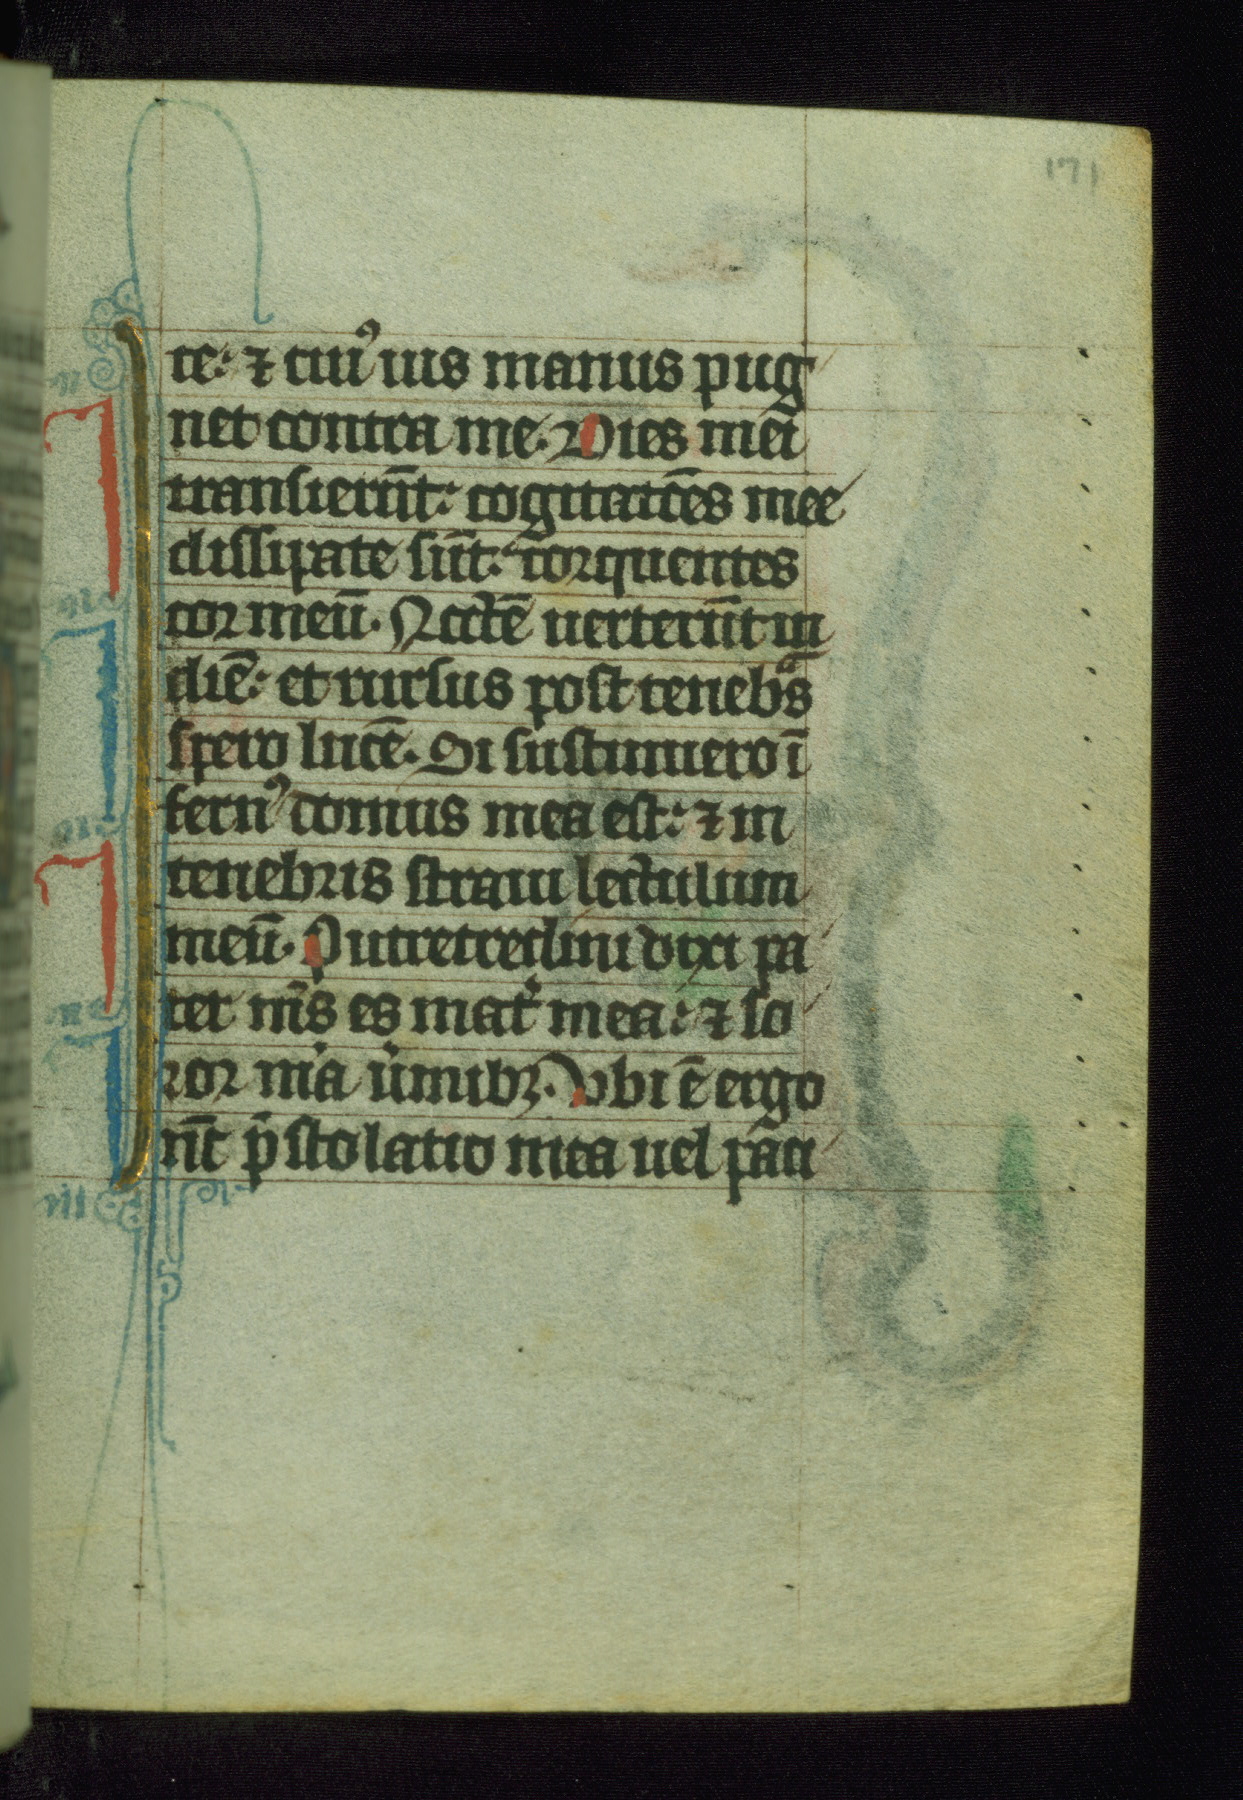 171
te: ⁊ cuiꝰ uis manus pug
net contra me. Dies mei
transierūt: cogitatōes mee
dissipate sūt: torquentes
cor meū. Noctē uerterūt in
diē: et rursus post tenebͣs
spero lucē. Si sustinuero ī
fernꝰ domus mea est: ⁊ in
tenebris straui lectulum
meū. Putretredini dixi pa
ter m̄s es mat̾ mea: ⁊ so
ror mͥa ūmibꝫ. Vbi ē ergo
nc̄ p̄stolatio mea uel pāci